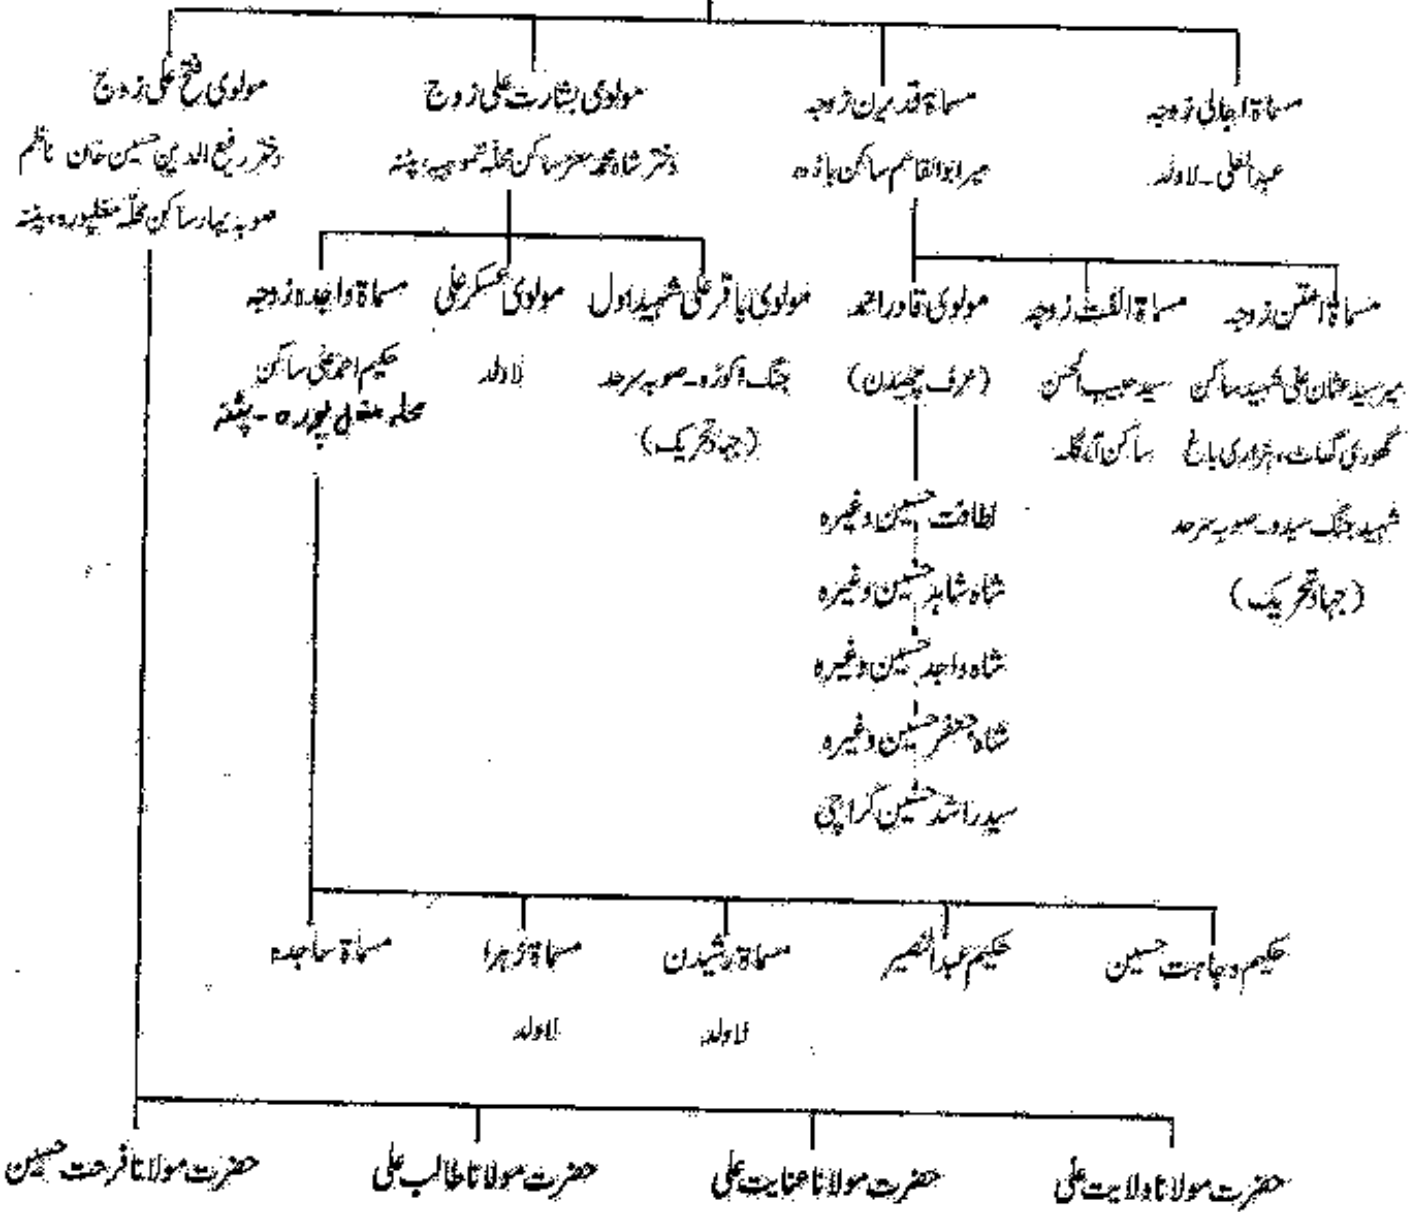 مسماۃ اجالی زوجہ
عبدالعلی۔ لاولد
مسماۃ قدیرن زوجہ
میر ابوالقاسم ساکن باڑہ
مولوی بشارت علی زوج
دختر شاہ محمد معز ساکن محلّہ نموہیہ، پٹنہ
مولوی فتح علی زوج
دختر رفیع الدین حسین خان ناظم
صوبہ بہار ساکن محلّہ مغلپورہ، پٹنہ
زوجہ
میر سید عثمان علی شہید ساکن
گھوری گھاٹ، ہزاری باغ
شہید جنگ سیدو۔ صوبہ سرحد
(جہاد تحریک)
مسماۃ الفت زوجہ
سید حبیب الحسن
ساکن
مولوی قادر احمد
(عرف)
لطافت حسین وغیرہ
شاہ شاہد حسین وغیرہ
شاہ واجد حسین وغیرہ
شاہ جعفر حسین وغیرہ
سید راشد حسین کراچی
مولوی باقر علی شہید اول
جنگ اکوڑہ۔ صوبہ سرحد
(جہاد تحریک)
مولوی عسکر علی
لاولد
مسماۃ واجدہ زوجہ
حکیم احمد علی ساکن
محلہ مغل پورہ - پٹنہ
حکیم وجاہت حسین
حکیم عبدالنصیر
مسماۃ رشیدن
لاولد
مسماۃ زہرا
لاولد
مسماۃ ساجدہ
حضرت مولانا ولایت علی
حضرت مولانا عنایت علی
حضرت مولانا طالب علی
حضرت مولانا فرحت حسین